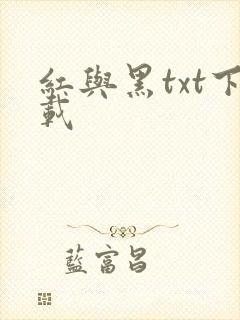 紅與黑txt下
載
藍富昌